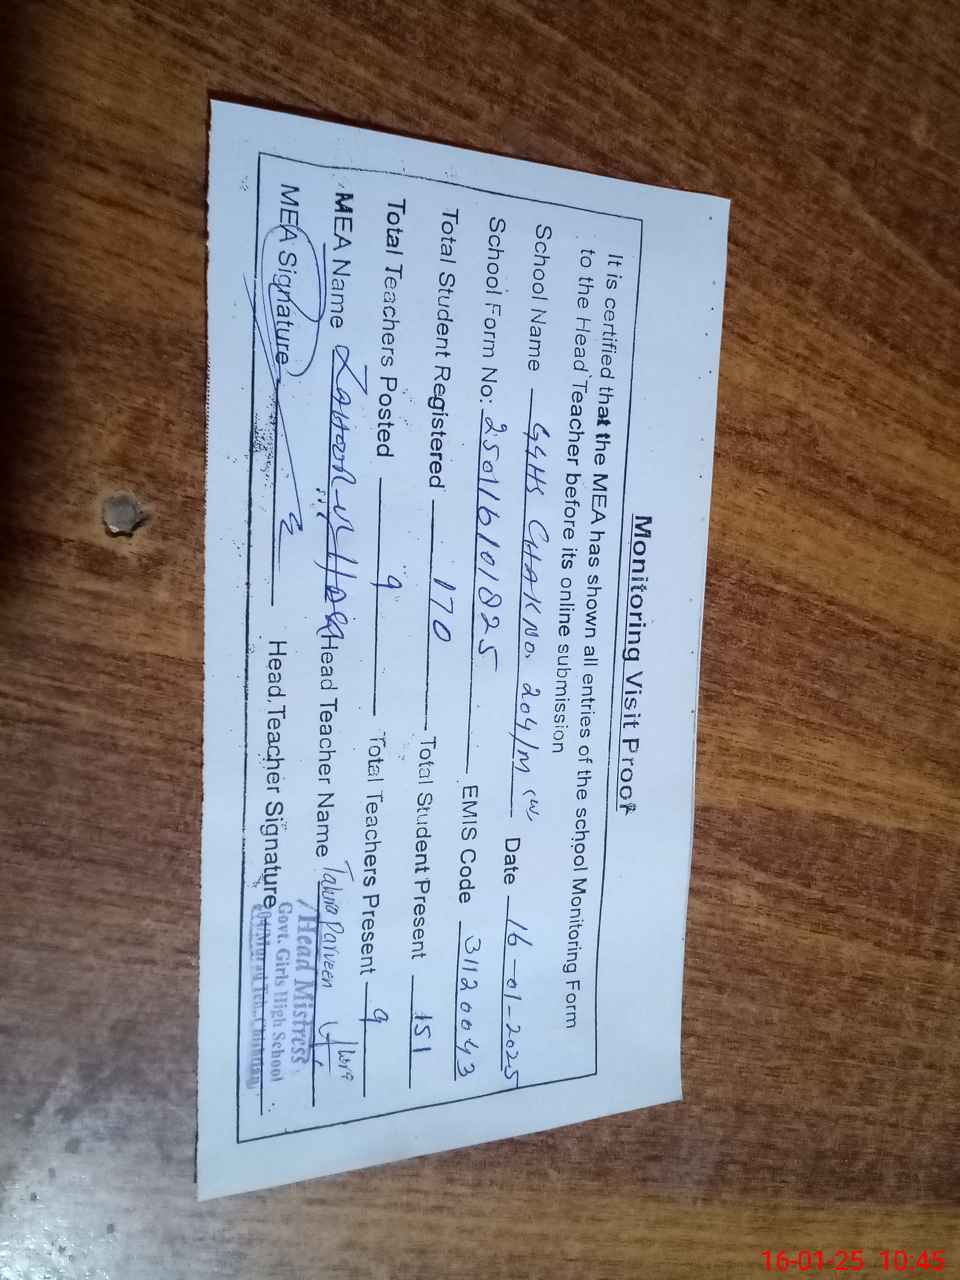 Monitoring Visit Proof
It is certified that the MEA has shown all entries of the school Monitoring Form
to the Head Teacher before its online submission
School Name GGHS CHAK No. 204/M (W) Date 16-01-2025
School Form No: 250116101825 EMIS Code 31120043
Total Student Registered 170 Total Student Present 151
Total Teachers Posted 9 Total Teachers Present 9
MEA Name Zahoor-ul-Haq Head Teacher Name Parveen
MEA Signature Head Teacher Signature
Head Mistress
Govt. Girls High School
204/Murad Teh. Chishtian
16-01-25 10:45